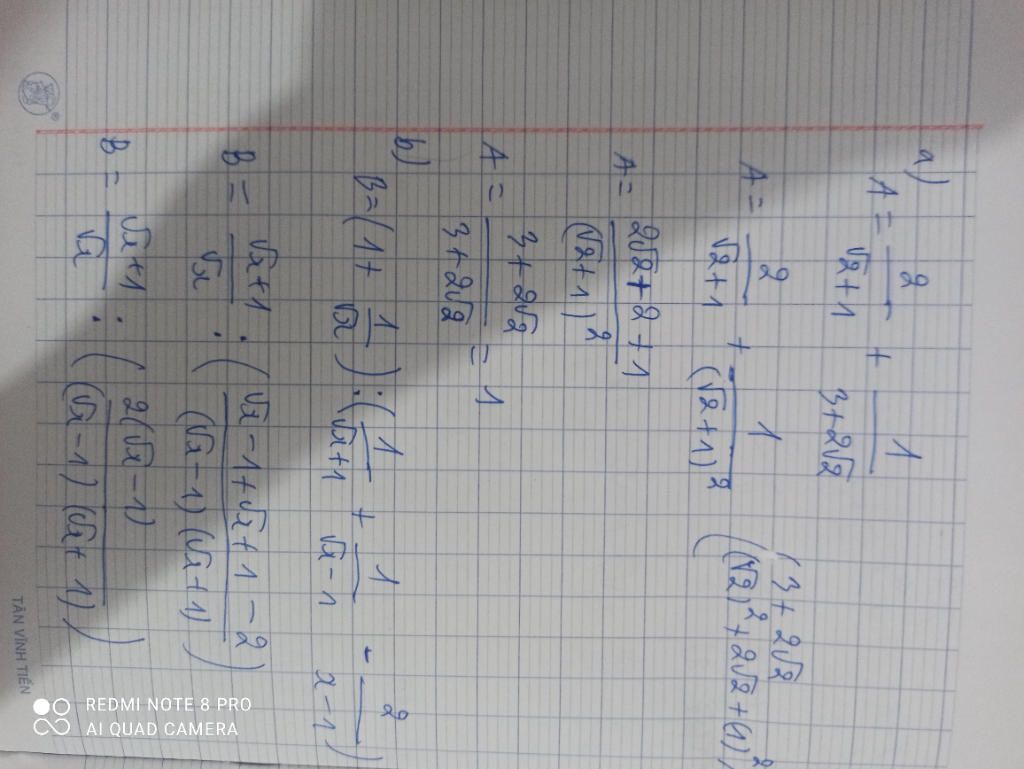 a)
A = 2/(√2+1) + 1/(3+2√2)
(3 + 2√2
A = 2/(√2+1) + 1/(√2+1)²
((√2)² + 2√2 + (1)²
A = (2√2+2+1)/(√2+1)²
A = (3+2√2)/(3+2√2) = 1
b)
B = (1 + 1/√x) : (1/(√x+1) + 1/(√x-1) - 2/(x-1))
B = (√x+1)/√x : ((√x-1+√x+1-2)/((√x-1)(√x+1)))
B = (√x+1)/√x : (2(√x-1)/((√x-1)(√x+1)))
TÂN VĨNH TIẾN
®
REDMI NOTE 8 PRO
AI QUAD CAMERA